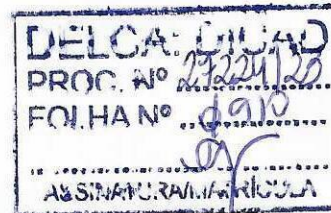 DELCA: DICAD
PROC. Nº 27224/20
FOLHA Nº
ASSINATURA/MATRÍCULA